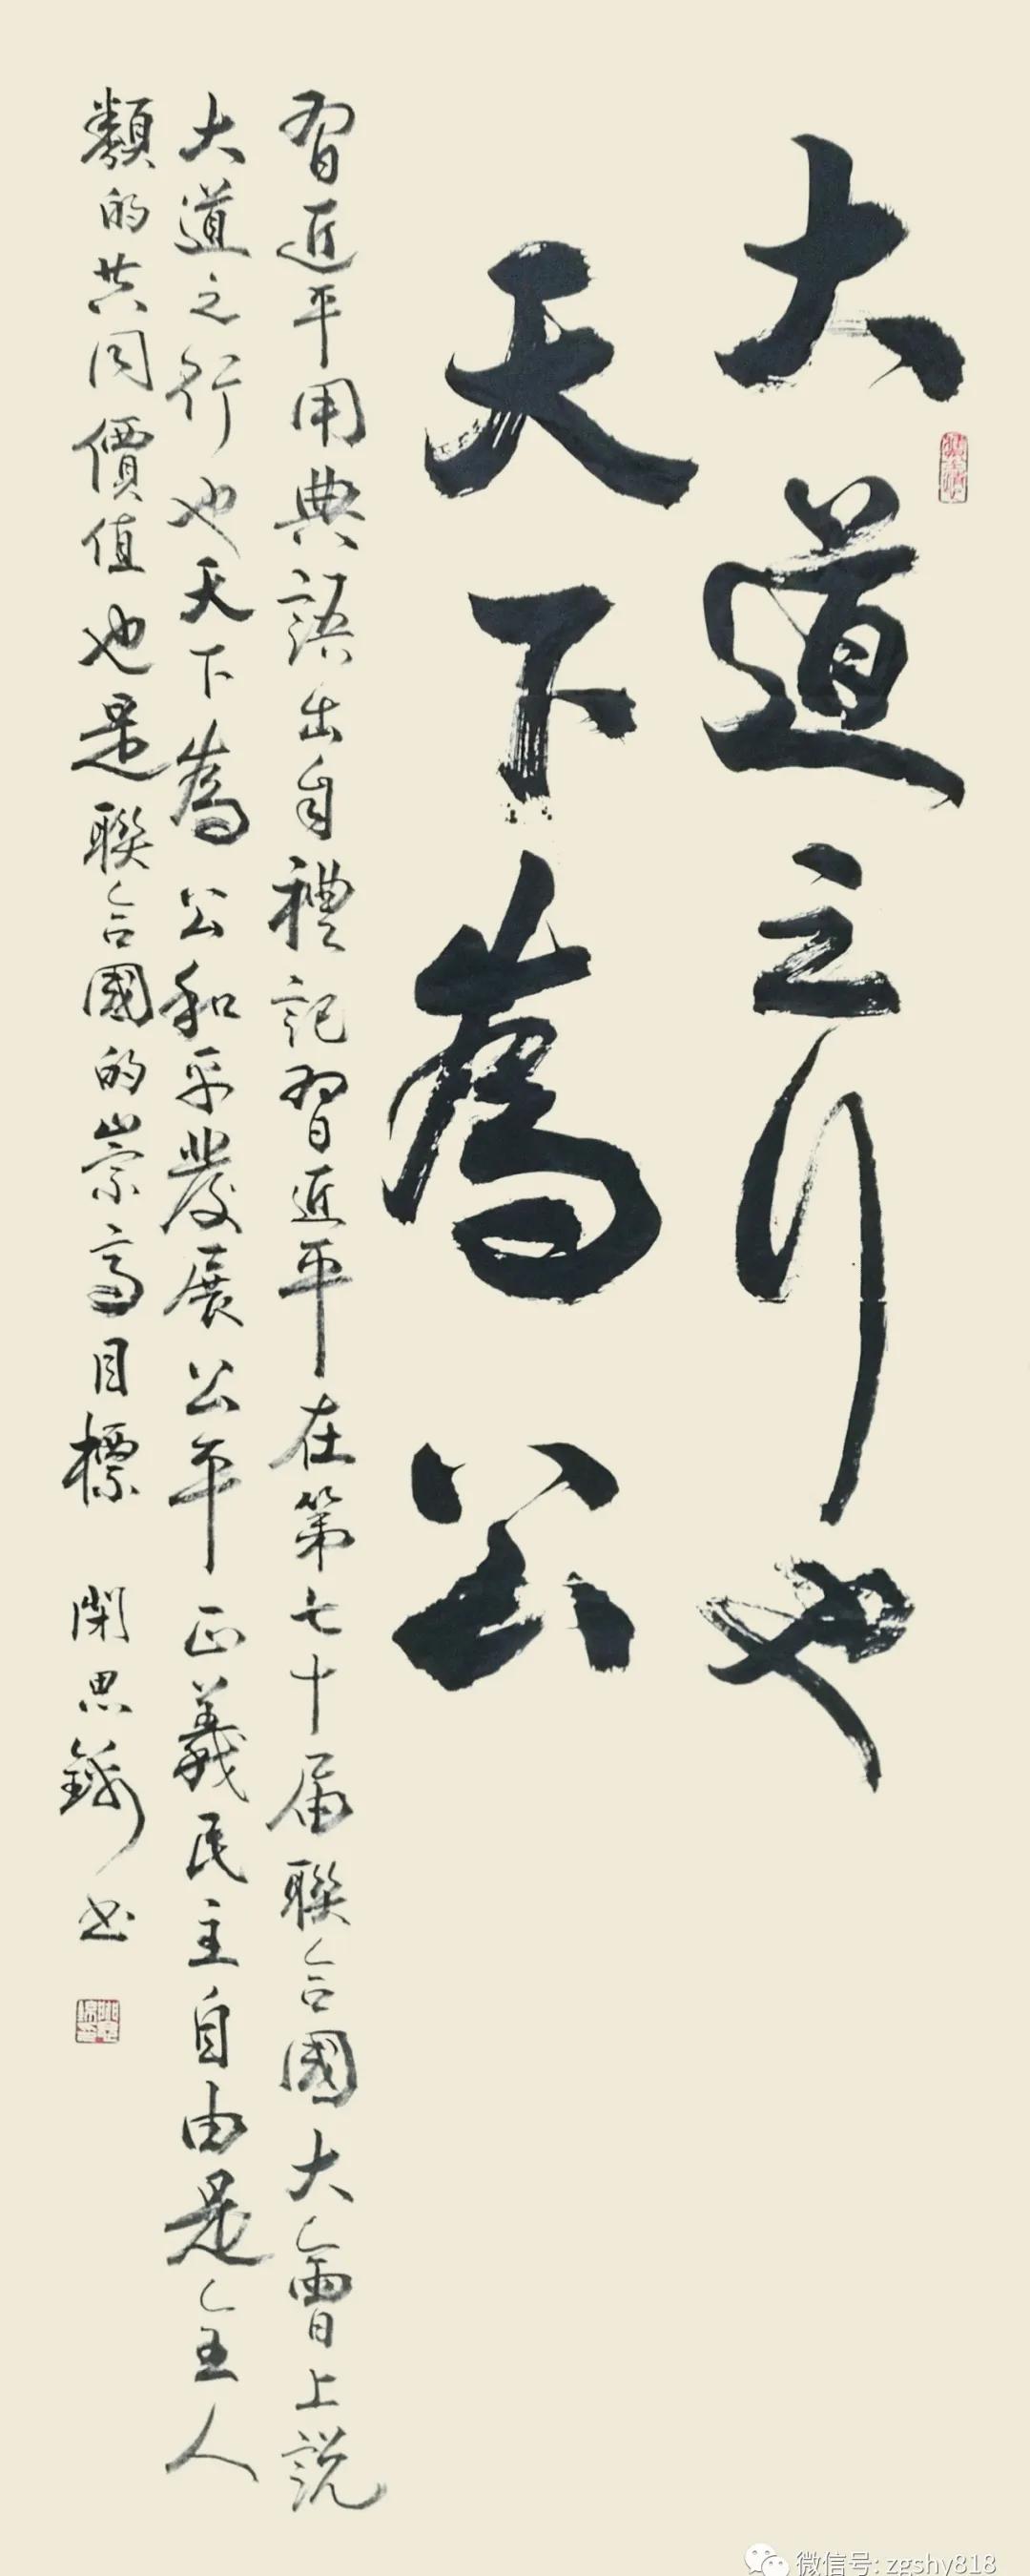 大道之行也
天下為公
習近平用典語出自禮記習近平在第七十届聯合國大會上説
大道之行也天下為公和平發展公平正義民主自由是全人
類的共同價值也是聯合國的崇高目標 閑思錄书
微信号: zgshy818